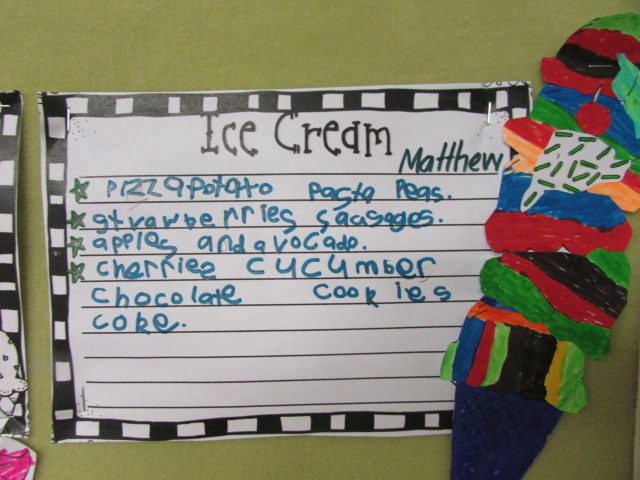 Ice Cream
Matthew
pizza potato pasta peas.
strawberries sausages.
apples and avocado.
cherries cucumber
chocolate cookies
coke.